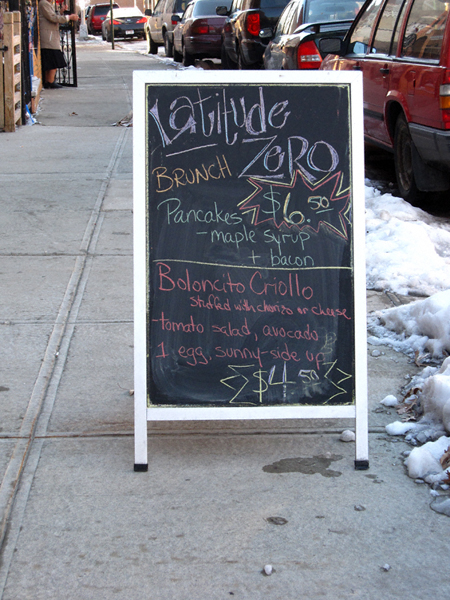 Latitude
ZERO
BRUNCH
Pancakes $6.50
- maple syrup
+ bacon
Boloncito Criollo
stuffed with chorizo or cheese
- tomato salad, avocado
1 egg sunny-side up
$4.50